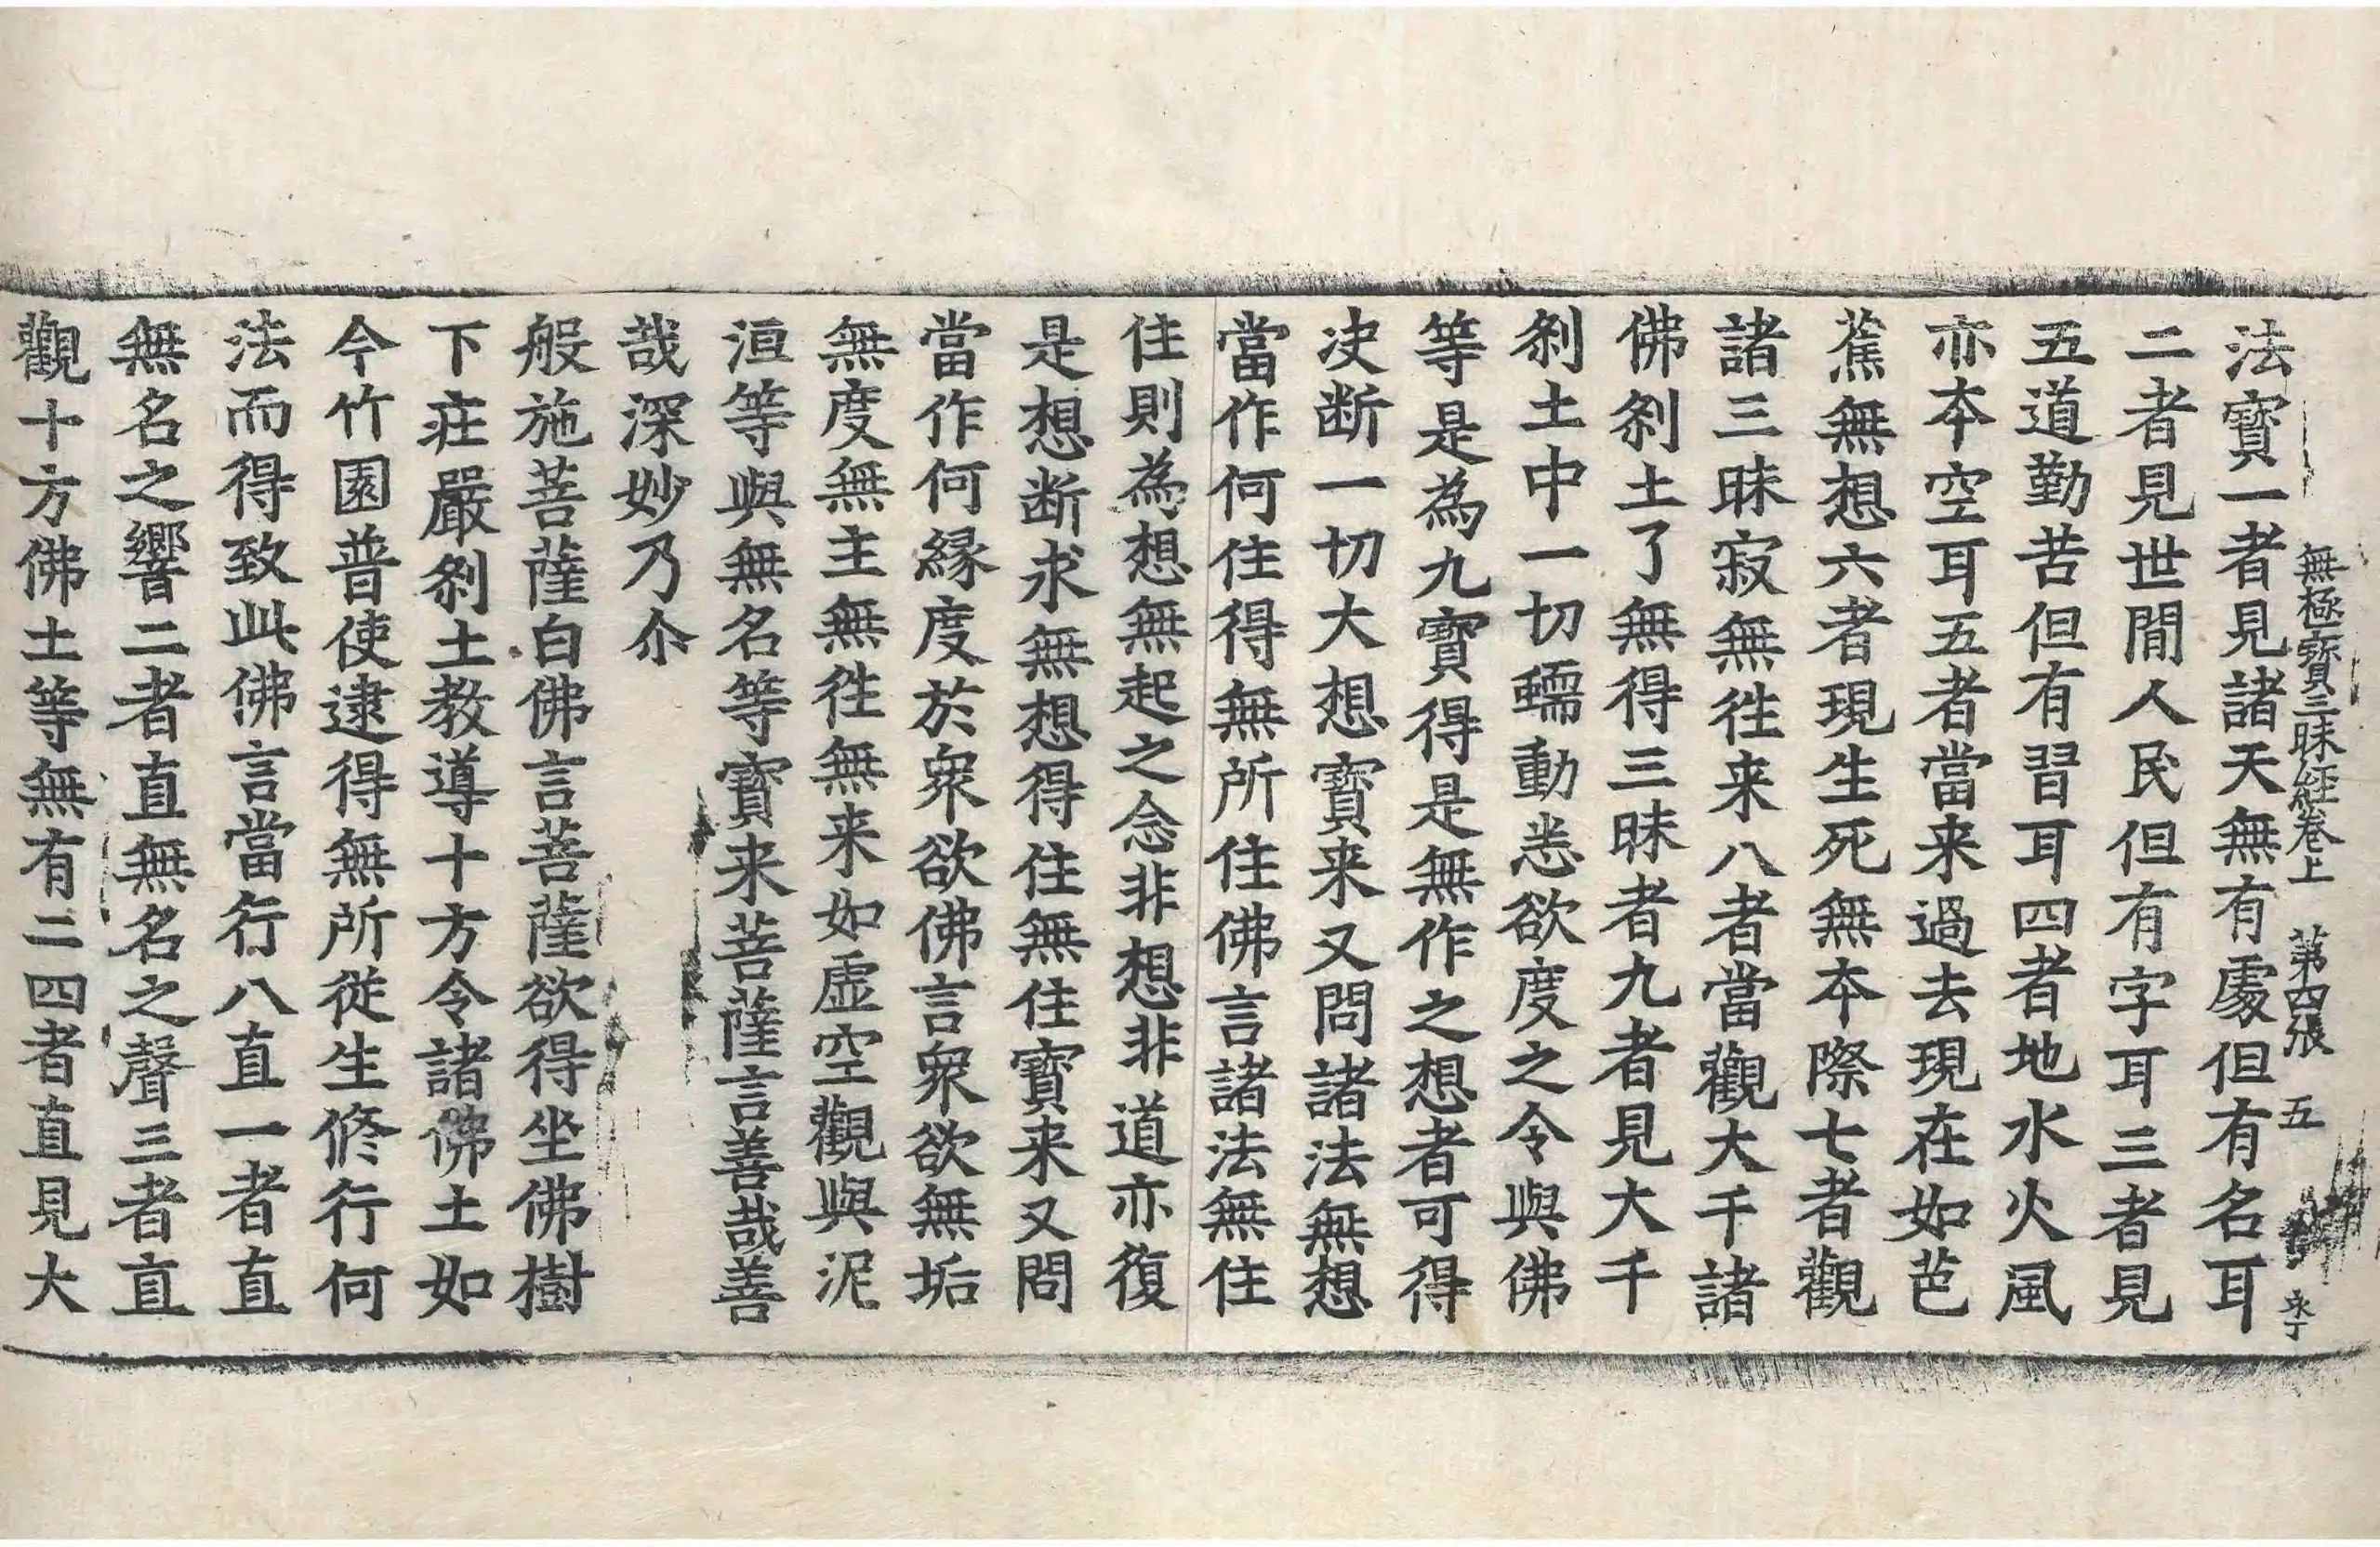 無極寶三昧経卷上 第四張 五
法寶一者見諸天無有處但有名耳
二者見世間人民但有字耳三者見
五道勤苦但有習耳四者地水火風
亦本空耳五者當来過去現在如芭
蕉無想六者現生死無本際七者觀
諸三昧寂無徃来八者當觀大千諸
佛刹土了無得三昧者九者見大千
刹土中一切蠕動悉欲度之令與佛
等是為九寶得是無作之想者可得
决断一切大想寶来又問諸法無想
當作何住得無所住佛言諸法無住
住則為想無起之念非想非道亦復
是想断求無想得住無住寶来又問
當作何縁度於衆欲佛言衆欲無垢
無度無主無徃無来如虛空觀與泥
洹等與無名等寶来菩薩言善哉善
哉深妙乃尒
般施菩薩白佛言菩薩欲得坐佛樹
下莊嚴刹土教導十方令諸佛土如
今竹園普使逮得無所從生修行何
法而得致此佛言當行八直一者直
無名之響二者直無名之聲三者直
觀十方佛土等無有二四者直見大